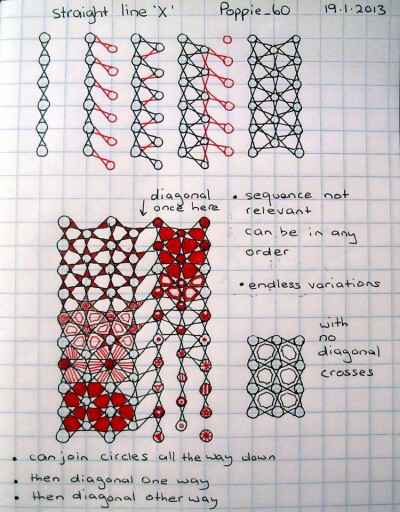 straight line 'X' Poppie_60 19.1.2013
diagonal
once here
• sequence not
relevant
can be in any
order
• endless variations
with
no
diagonal
crosses
• can join circles all the way down
• then diagonal one way
• then diagonal other way